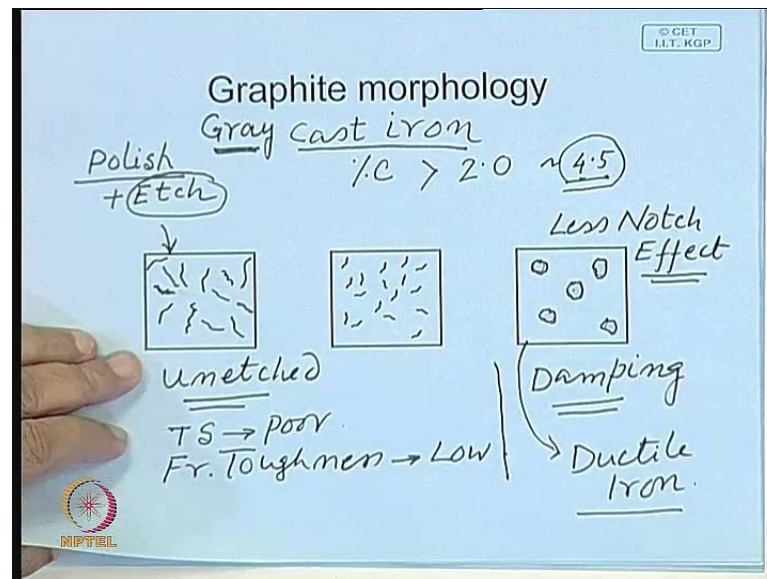 © CET
I.I.T. KGP
Graphite morphology
Gray cast iron
Polish
+ Etch
%C > 2.0 ~ 4.5
Less Notch
Effect
Unetched
TS → Poor
Fr. Toughness → Low
Damping
Ductile
Iron.
NPTEL